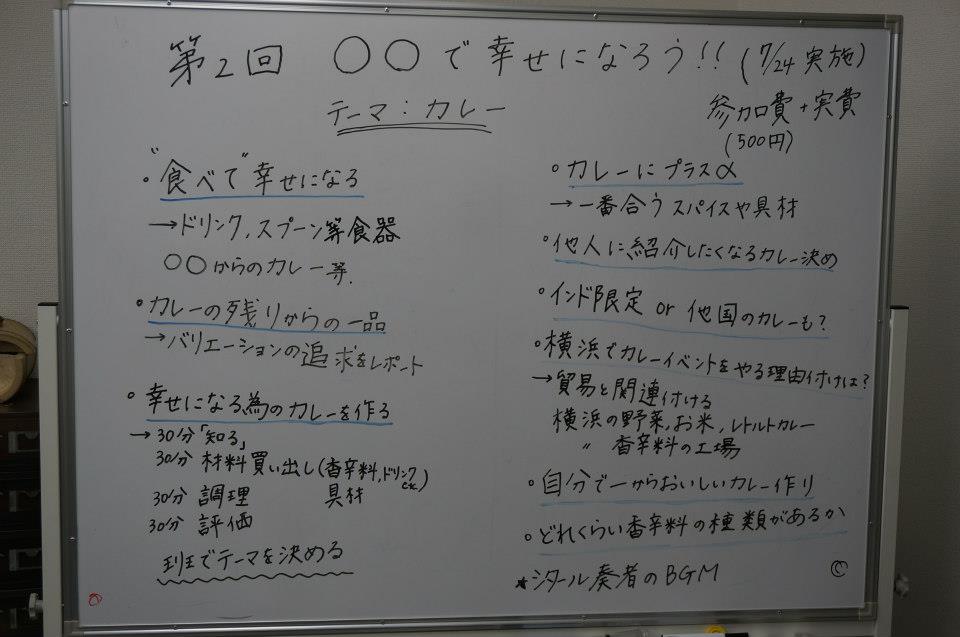 第2回 ○○で幸せになろう!! (7/24 実施)
テーマ:カレー
参加費+実費
(500円)
・"食べて"幸せになる
→ドリンク,スプーン等食器
○○からのカレー等.
・カレーの残りからの一品
→バリエーションの追求をレポート
・幸せになる為のカレーを作る
→30分「知る」
30分 材料買い出し(香辛料,ドリンク etc)
具材
30分 調理
30分 評価
班でテーマを決める
・カレーにプラスα
→一番合うスパイスや具材
・他人に紹介したくなるカレー決め
・インド限定 or 他国のカレーも?
・横浜でカレーイベントをやる理由付けは?
→貿易と関連付ける
横浜の野菜,お米,レトルトカレー
〃 香辛料の工場
・自分で一からおいしいカレー作り
・どれくらい香辛料の種類があるか
★シタール奏者のBGM
©